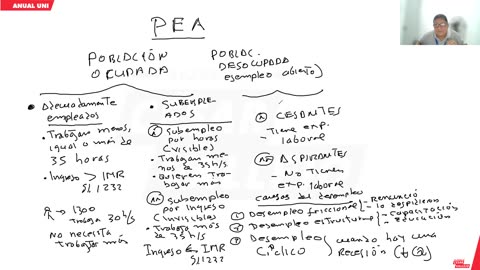 ANUAL UNI
PEA
POBLACIÓN
OCUPADA
POBLAC.
DESOCUPADA
esempleo abierto)
Adecuadamente
empleados
• Trabajan menos,
igual o más de
35 horas
• Ingreso > IMR
S/. 1232
→ 1300
trabaja 30h/s
NO necesita
trabajar más
SUBEMPLE-
ADOS
Subempleo
por horas
(visibles)
• Trabajan me
nos de 35h/s
• Quieren tra-
bajar más
Subempleo
por ingreso
(invisibles)
• Trabajan más
de 35h/s
Ingreso < IMR
S/. 1232
CESANTES
- Tiene exp.
laboral
ASPIRANTES
- No tienen
exp. laboral
causas del desempleo
① Desempleo friccional - renunció
- lo despidieron
② Desempleo estructural - capacitación
- educación
③ Desempleo
cíclico
cuando hay una
recesión